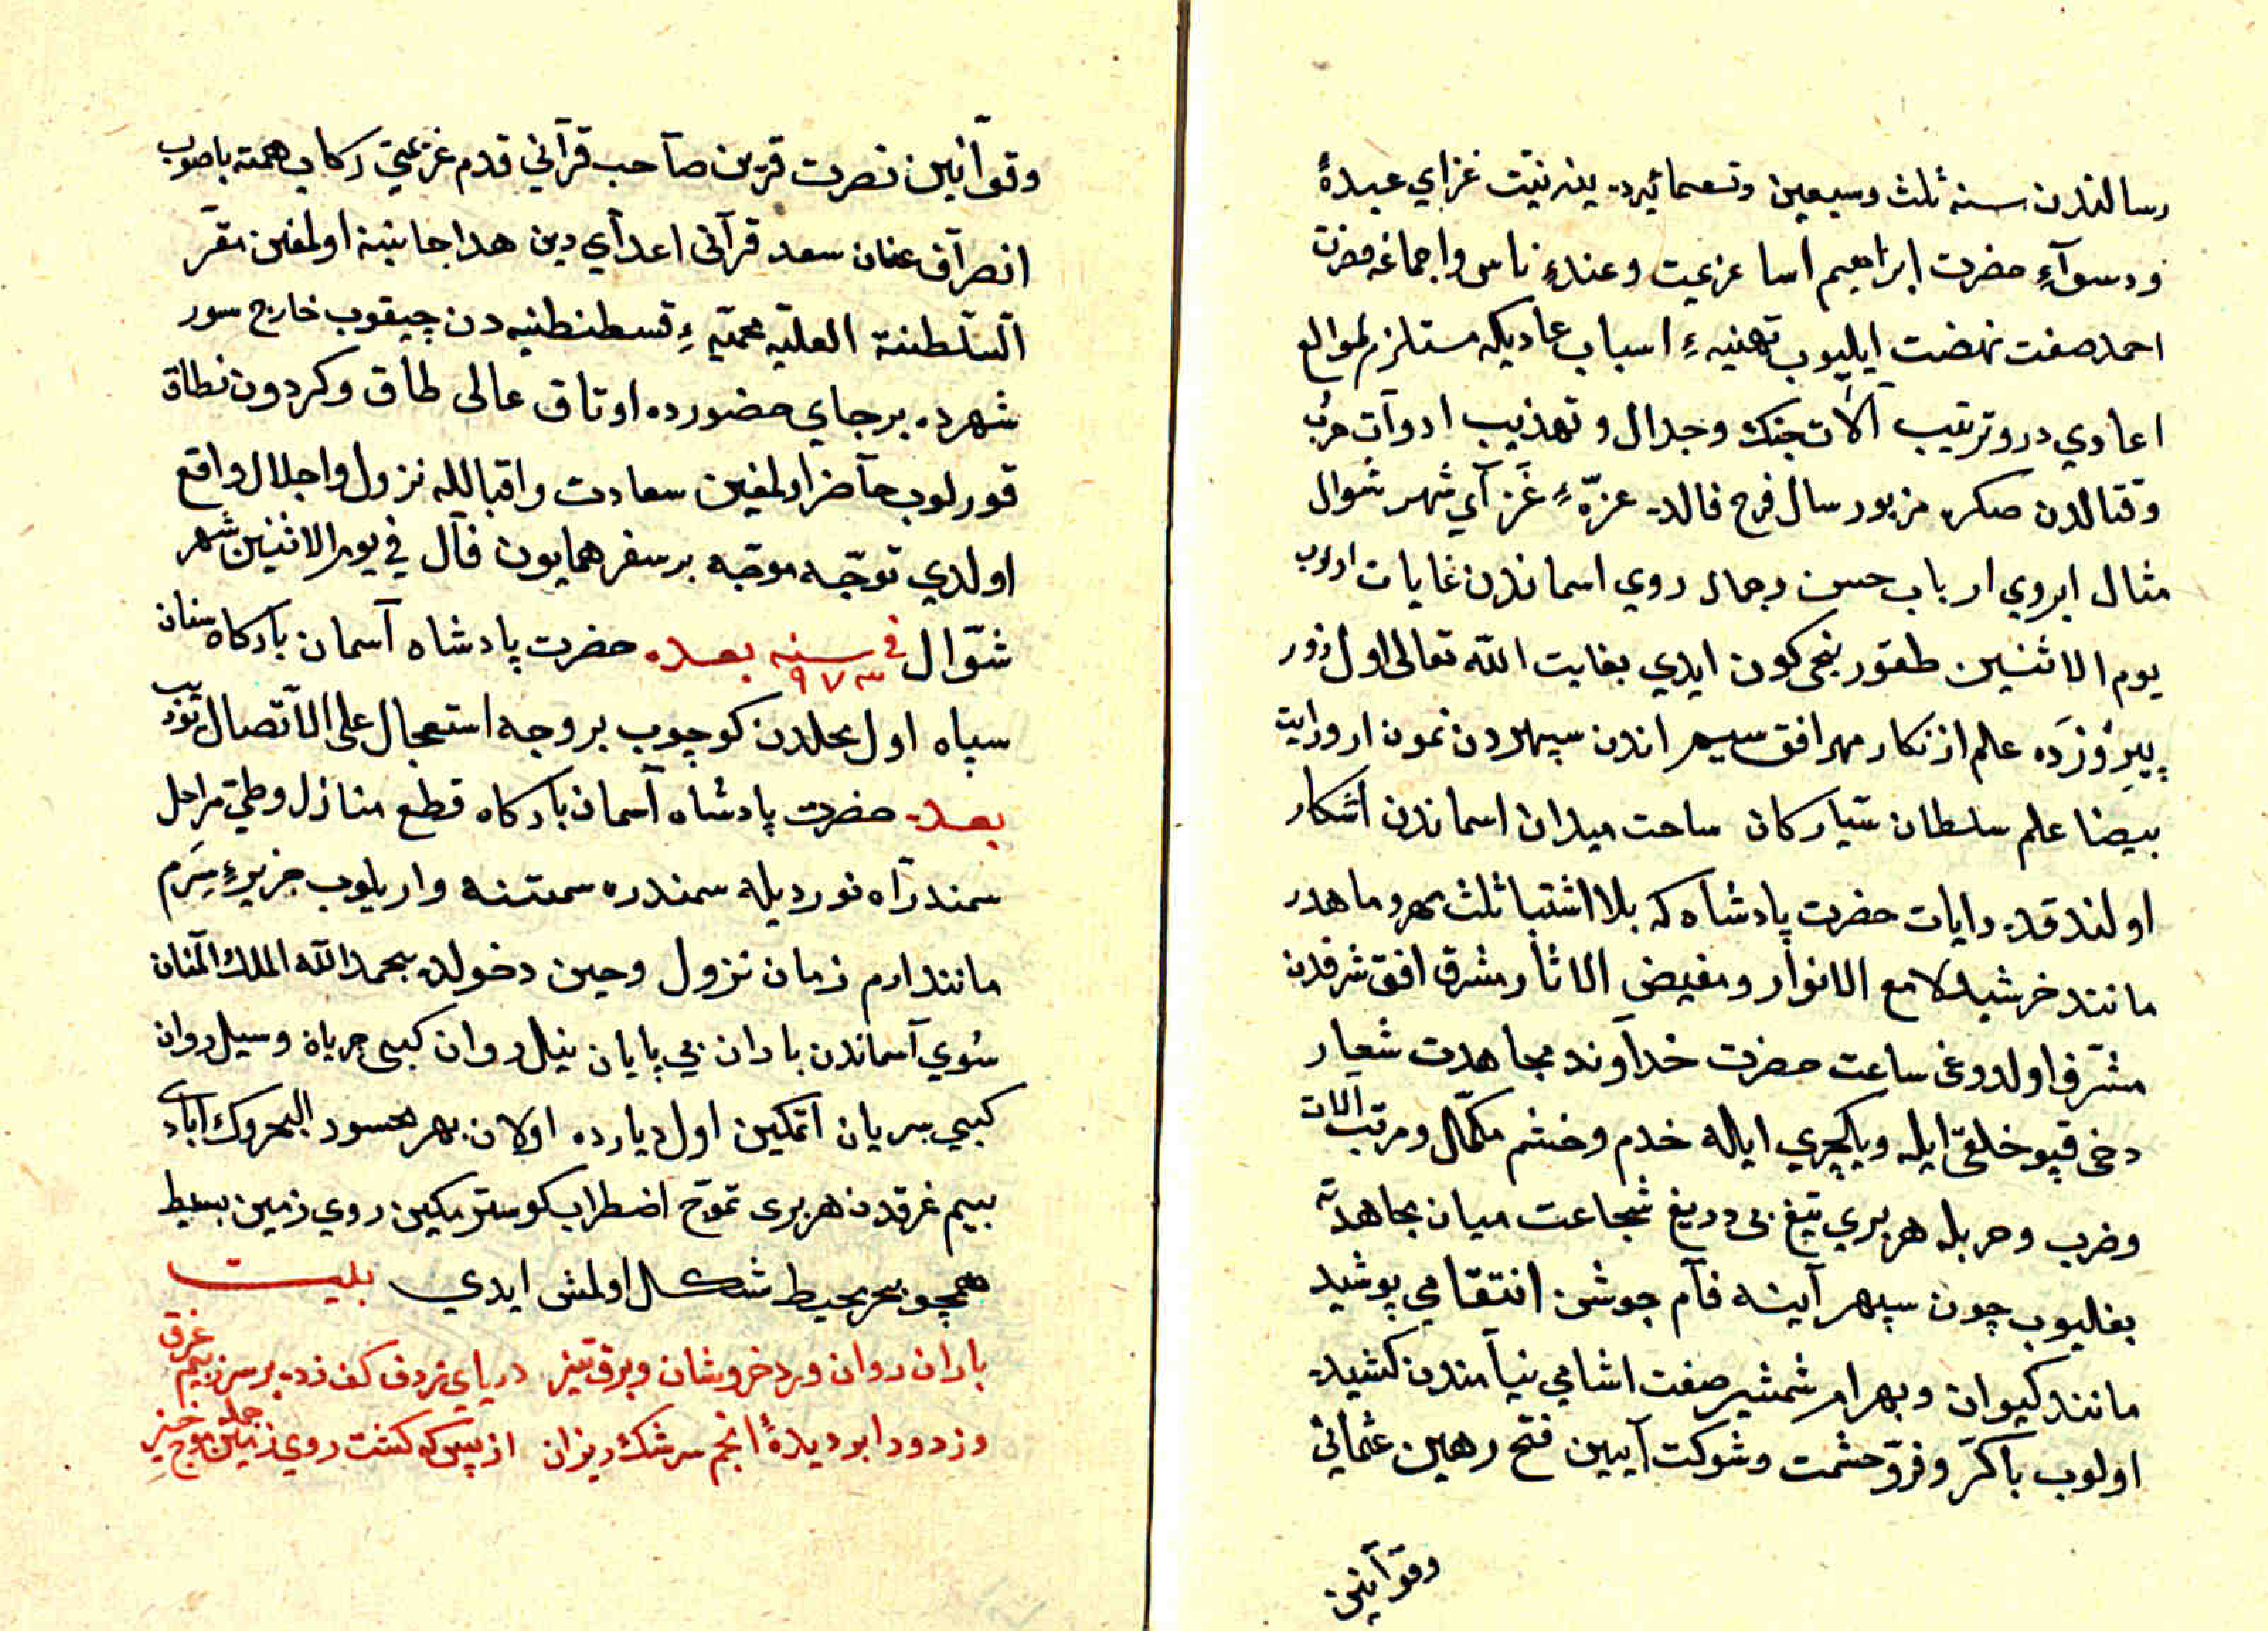 رسالتدن سنه ثلث وسبعین وتسعمائیه ده ینه نیت غزای عبدهٔ
ودسوآءِ حضرت ابراهیم اسا عزیمت وعندءِ ناس واجماغه حضرت
احمد صفت نهضت ایلیوب تهنیهءِ اسباب عادیکه مستلزم لموالع
اعادي درو ترتیب آلات جنك وجدال و تهذیب ادوآت حرب
وقتالدن صکره مزبور سال فرح فالده غزّهءِ غَزآي شهر شوال
مثال ابروي ارباب حسن وجمال روي اسماندن غایات اولوب
یوم الاثنین طقوزنجی کون ایدي بغایت الله تعالی اول روز
پیرُوزَده علم ازنکار مهر افق سیهر اندن سپهردن نمون ار ورایت
بیضا علم سلطان سیارکان ساحت میدان اسماندن اشکار
اولندقده رایات حضرت پادشاه که بلا اشتبا ثلث مهر وماهدر
مانند خرشید لامع الانوار ومفیض الاثار مشرق افق شرفدن
مشرّف اولدوغی ساعت حضرت خدآوند مجاهدت شعار
دخی قپو خلقی ایله ویکیچري ایله خدم وحشم مکمّل ومرتب الات
وضرب وحربله هر بري تیغ بی دریغ شجاعت میان مجاهدته
بغلیوب چون سپهر آینه فآم جوشن انتقامي پوشید
مانند کیوان وبهرام شمشیر صفت اشامي نیآمندن کشیده
اولوب باکرّ وفرّ وحشمت وشوکت آیین فتح رهین عثمانی
وقوآنین
وقوآنین نصرت قرین صآحب قرآنی قدم عزیمتي رکاب همته باصوب
انصرآف عنان سعد قرآنی اعدآي دین هدا جانبینه اولمغین مقرّ
السّلطنة العلیّه محمیّهءِ قسطنطنیه دن چیقوب خارج سور
شهرده برجاي حضورده اوتاق عالی طاق وکردون نطاق
قورلوب حآضر اولمغین سعادت واقباللہ نزول واجلال واقع
اولدي توجّه موجّه بر سفر همایون فآل في یوم الاثنین شهر
شوّال في سنه ٩٧٣ بعده حضرت پادشاه آسمان بآرکاه ستان
سپاه اول محلدن کوچوب بر وجه استعجال علی الاتّصال
بعده حضرت پادشاه آسمان بآرکاه قطع منازل وطيّ مراحل
سمند رآه نوردیله سمندره سمتنه واریلوب جزیرهءِ سِرَم
مانند ارم زمان نزول وحین دخولده بحمد الله الملك المنان
سُوي آسماندن باران بي پایان نیل روان کبی جریاة وسیل روان
کبي سریان اتمکین اول دیارده اولان بهر محسود البحروك آبادی
بیم غرقدن هر بری تموّج اضطراب کوسترمکین روي زمین بسیط
همچو بحر محیط شکل اولمش ایدي بلیت
باران روان ورد خروشان وبرق تیز دریاي ژرف کف زده برسر ز بیم غرق
وز دود ابر دیدهٔ انجم سرشك ریزان از پس که کشت روي زمین جمله موج خیز